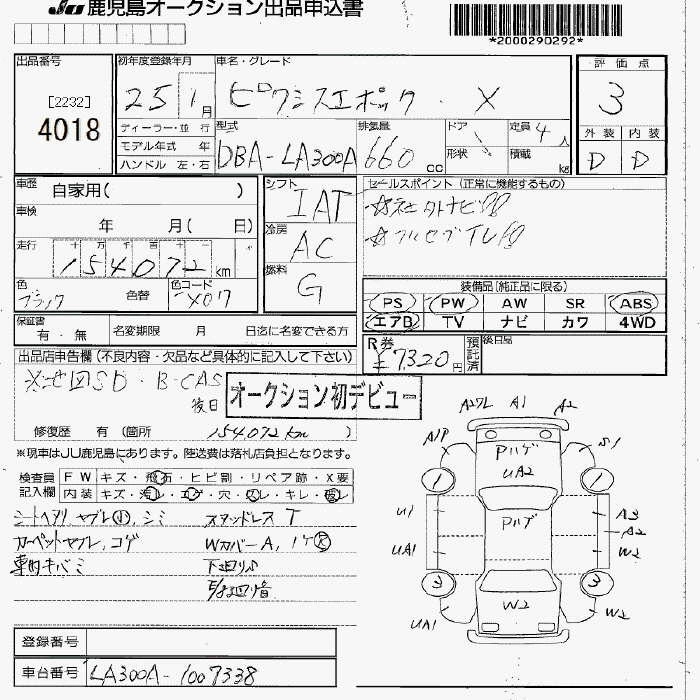 JU 鹿児島オークション出品申込書
*2000290292*
出品番号
[2232]
4018
初年度登録年月
25 1月
車名・グレード
ピクシスエポック . X
評価点
3
外装 内装
D D
ディーラー・並行
モデル年式 年
ハンドル 左・右
型式
DBA-LA300A
排気量
660 cc
ドア
形状
定員 4人
積載 kg
車歴 自家用( )
車検 年 月( 日)
走行 十 万 千 百 十 一
154072 km
色 ブラック 色替
色コード X07
シフト
IAT
冷房
AC
燃料
G
セールスポイント (正常に機能するもの)
☆社外ナビ
☆フルセグTV
装備品[純正品に限る]
PS PW AW SR ABS
エアB TV ナビ カワ 4WD
保証書 有・無
名変期限 月 日迄に名変できる方
R券 ¥7320円
預託済
後日品
出品店申告欄(不良内容・欠品など具体的に記入して下さい)
※地図SD・B-CAS
後日
オークション初デビュー
修復歴 有 (箇所 154072km )
※現車はJU鹿児島にあります。陸送費は落札店負担となります。
検査員記入欄
FW キズ・飛石・ヒビ割・リペア跡・X要
内装 キズ・汚レ・コゲ・穴・スレ・キレ・破レ
シートヘタリ、ヤブレ小、シミ スタッドレスT
カーペットヤブレ、コゲ WカバーA、
車内キバミ 下回リサビ
A27L A1 A2
A1P S1
Pハゲ
UA2
1 1
U1 Pハゲ A3
A2
UA1 W2
3 3
W2
UA1 W2
登録番号
車台番号 LA300A-1007338